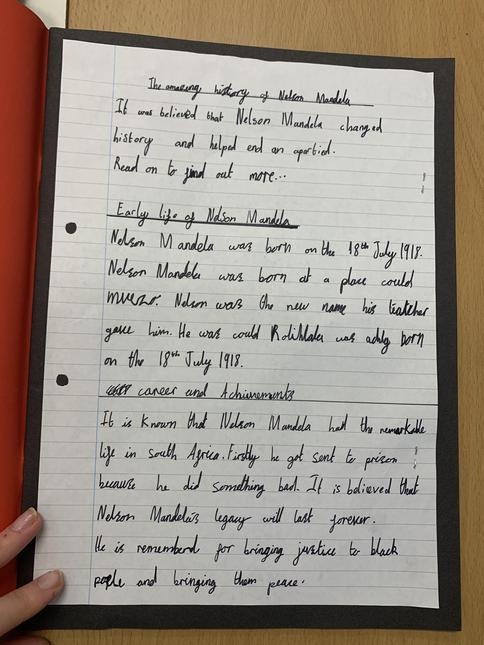 The amazing history of Nelson Mandela
It was believed that Nelson Mandela changed
history and helped end an apartied.
Read on to find out more...
Early life of Nelson Mandela
Nelson Mandela was born on the 18th July 1918.
Nelson Mandela was born at a place could
mvezo. Nelson was the new name his teatcher
gave him. He was could Rolihlala was born
on the 18th July 1918.
career and Achievements
It is known that Nelson Mandela had the remarkable
life in south Africa. Firstly he got sent to prison
because he did something bad. It is believed that
Nelson Mandela's legacy will last forever.
He is rememberd for bringing justice to black
people and bringing them peace.